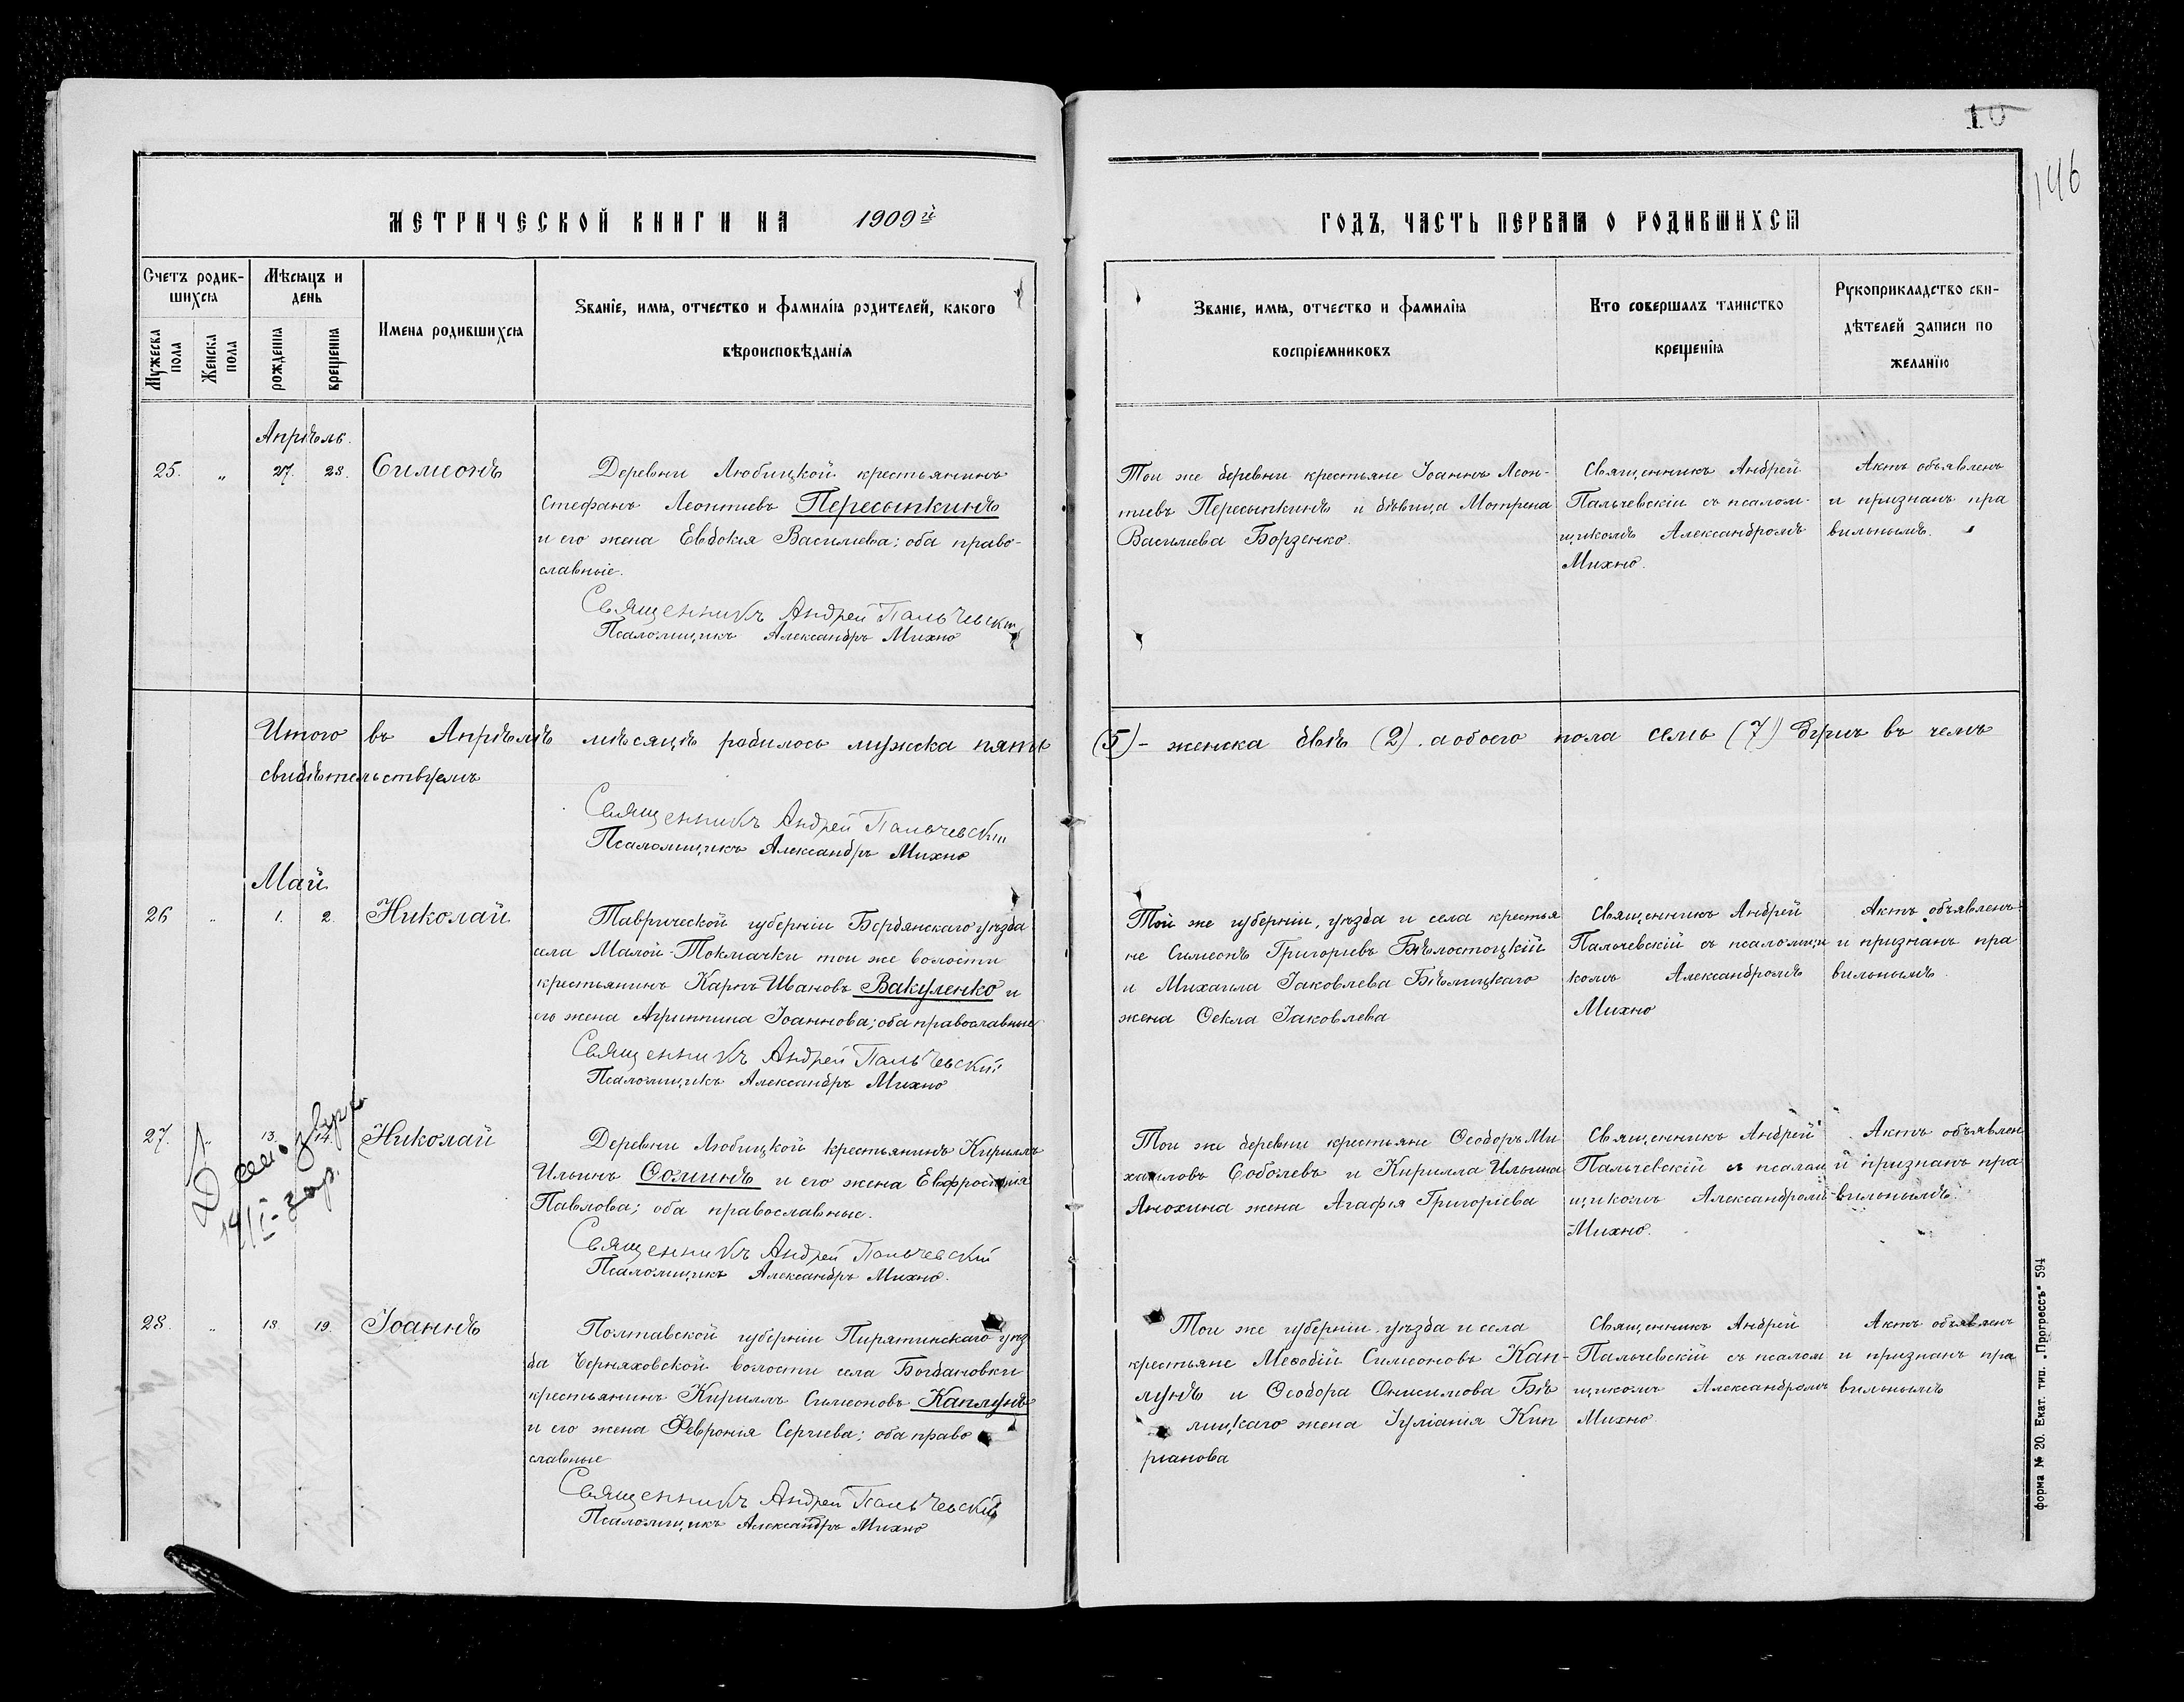 10
146
МЕТРИЧЕСКОЙ КНИГИ НА 1909й
ГОДЪ, ЧАСТЬ ПЕРВАЯ О РОДИВШИХСЯ
Счетъ родив-
шихся
Мужеска
пола
Женска
пола
Мѣсяцъ и
день
рожденія
крещенія
Имена родившихся
Званіе, имя, отчество и фамилія родителей, какого
вѣроисповѣданія
Званіе, имя, отчество и фамилія
воспріемниковъ
Кто совершалъ таинство
крещенія
Рукоприкладство сви-
дѣтелей записи по
желанію
Апрѣль.
25. „ 27. 28. Симеонъ
Деревни Любицкой крестьянинъ
Стефанъ Леонтиевъ Пересыпкинъ
и его жена Евдокия Василиева; оба право-
славные.
Священникъ Андрей Пальчевскій
Псаломщикъ Александръ Михно
Тои же деревни крестьяне Іоаннъ Леон-
тиевъ Пересыпкинъ и дѣвица Мотрена
Василиева Борзенко.
Священникъ Андрей
Пальчевскій съ псалом-
щикомъ Александромъ
Михно.
Актъ объявленъ
и признанъ пра
вильнымъ.
Итого въ Апрѣлѣ мѣсяцѣ родилось мужска пять (5) - женска двѣ (2). а обоего пола семь (7) душъ въ чемъ
свидѣтельствуемъ
Священникъ Андрей Пальчевскій
Псаломщикъ Александръ Михно
Май.
26 „ 1. 2. Николай
Таврической губерніи Бердянскаго уѣзда
села Малой-Токмачки тои же волости
крестьянинъ Карпъ Ивановъ Вакуленко и
его жена Агриппина Іоаннова; оба православные
Священникъ Андрей Пальчевскій
Псаломщикъ Александръ Михно
Той же губерніи, уѣзда и села крестья
не Симеонъ Григорьевъ Бѣлостоцкій
и Михаила Іаковлева Бѣлицкаго
жена Ѳекла Іаковлева
Священникъ Андрей
Пальчевскій съ псаломщи
комъ Александромъ
Михно
Актъ объявленъ
и признанъ пра
вильнымъ.
27. „ 13. 14. Николай
Деревни Любицкой крестьянинъ Кириллъ
Ильинъ Ѳоминъ и его жена Евфросинія
Павлова; оба православные.
Священникъ Андрей Пальчевскій
Псаломщикъ Александръ Михно.
Тои же деревни крестьяне Ѳеодоръ Ми
хаиловъ Соболевъ и Кирилла Ильина
Анохина жена Агафія Григоріева
Священникъ Андрей
Пальчевскій съ псалом
щикомъ Александромъ
Михно.
Актъ объявлен
и признанъ пра
вильнымъ.
28. „ 18. 19. Іоаннъ
Полтавской губерніи Пирятинскаго уѣз
да Черняховской волости села Богдановки
крестьянинъ Кириллъ Симеоновъ Каплунъ
и его жена Февронія Сергиева; оба право
славные
Священникъ Андрей Пальчевскій
Псаломщикъ Александръ Михно
Тои же губерніи, уѣзда и села
крестьяне Меѳодій Симеоновъ Кап-
лунъ и Ѳеодора Онисимова Бѣ
лицкаго жена Іуліанія Кип
ріанова
Священникъ Андрей
Пальчевскій съ псалом
щикомъ Александромъ
Михно
Актъ объявленъ
и признанъ пра
вильнымъ
форма № 20. Екат. тип. „Прогрессъ" 594